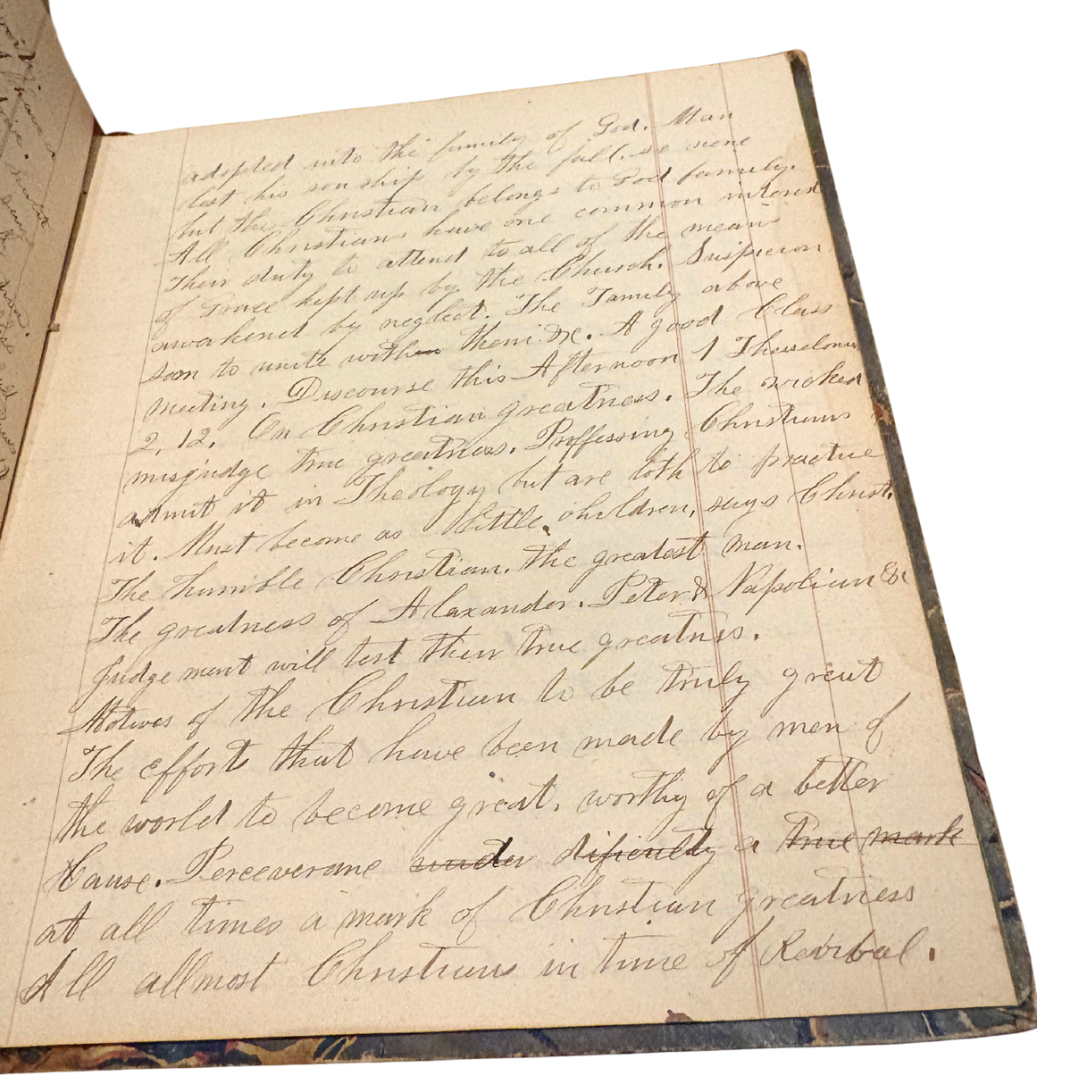 adopted into the family of God. Man
lost his sonship by the fall. so none
but the Christian belongs to God family.
All Christians have one common interest
Their duty to attend to all of the means
of Grace kept up by the Church. Suspicion
awakened by neglect. The Family above
soon to unite with them. &c. A good Class
meeting. Discourse this Afternoon 1 Thesselonia
2, 12. On Christian greatness. The wicked
misjudge true greatness. Proffessing Christians
admit it in Theology but are loth to practice
it. Must become as little children, says Christ.
The humble Christian. the greatest man.
The greatness of Alaxander. Peter & Napolian &c
Judgement will test their true greatness.
Motives of the Christian to be truly great
The efforts that have been made by men of
the world to become great, worthy of a better
Cause. Perceverane under dificulty a true mark
at all times a mark of Christian greatness
All allmost Christians in time of Revival.